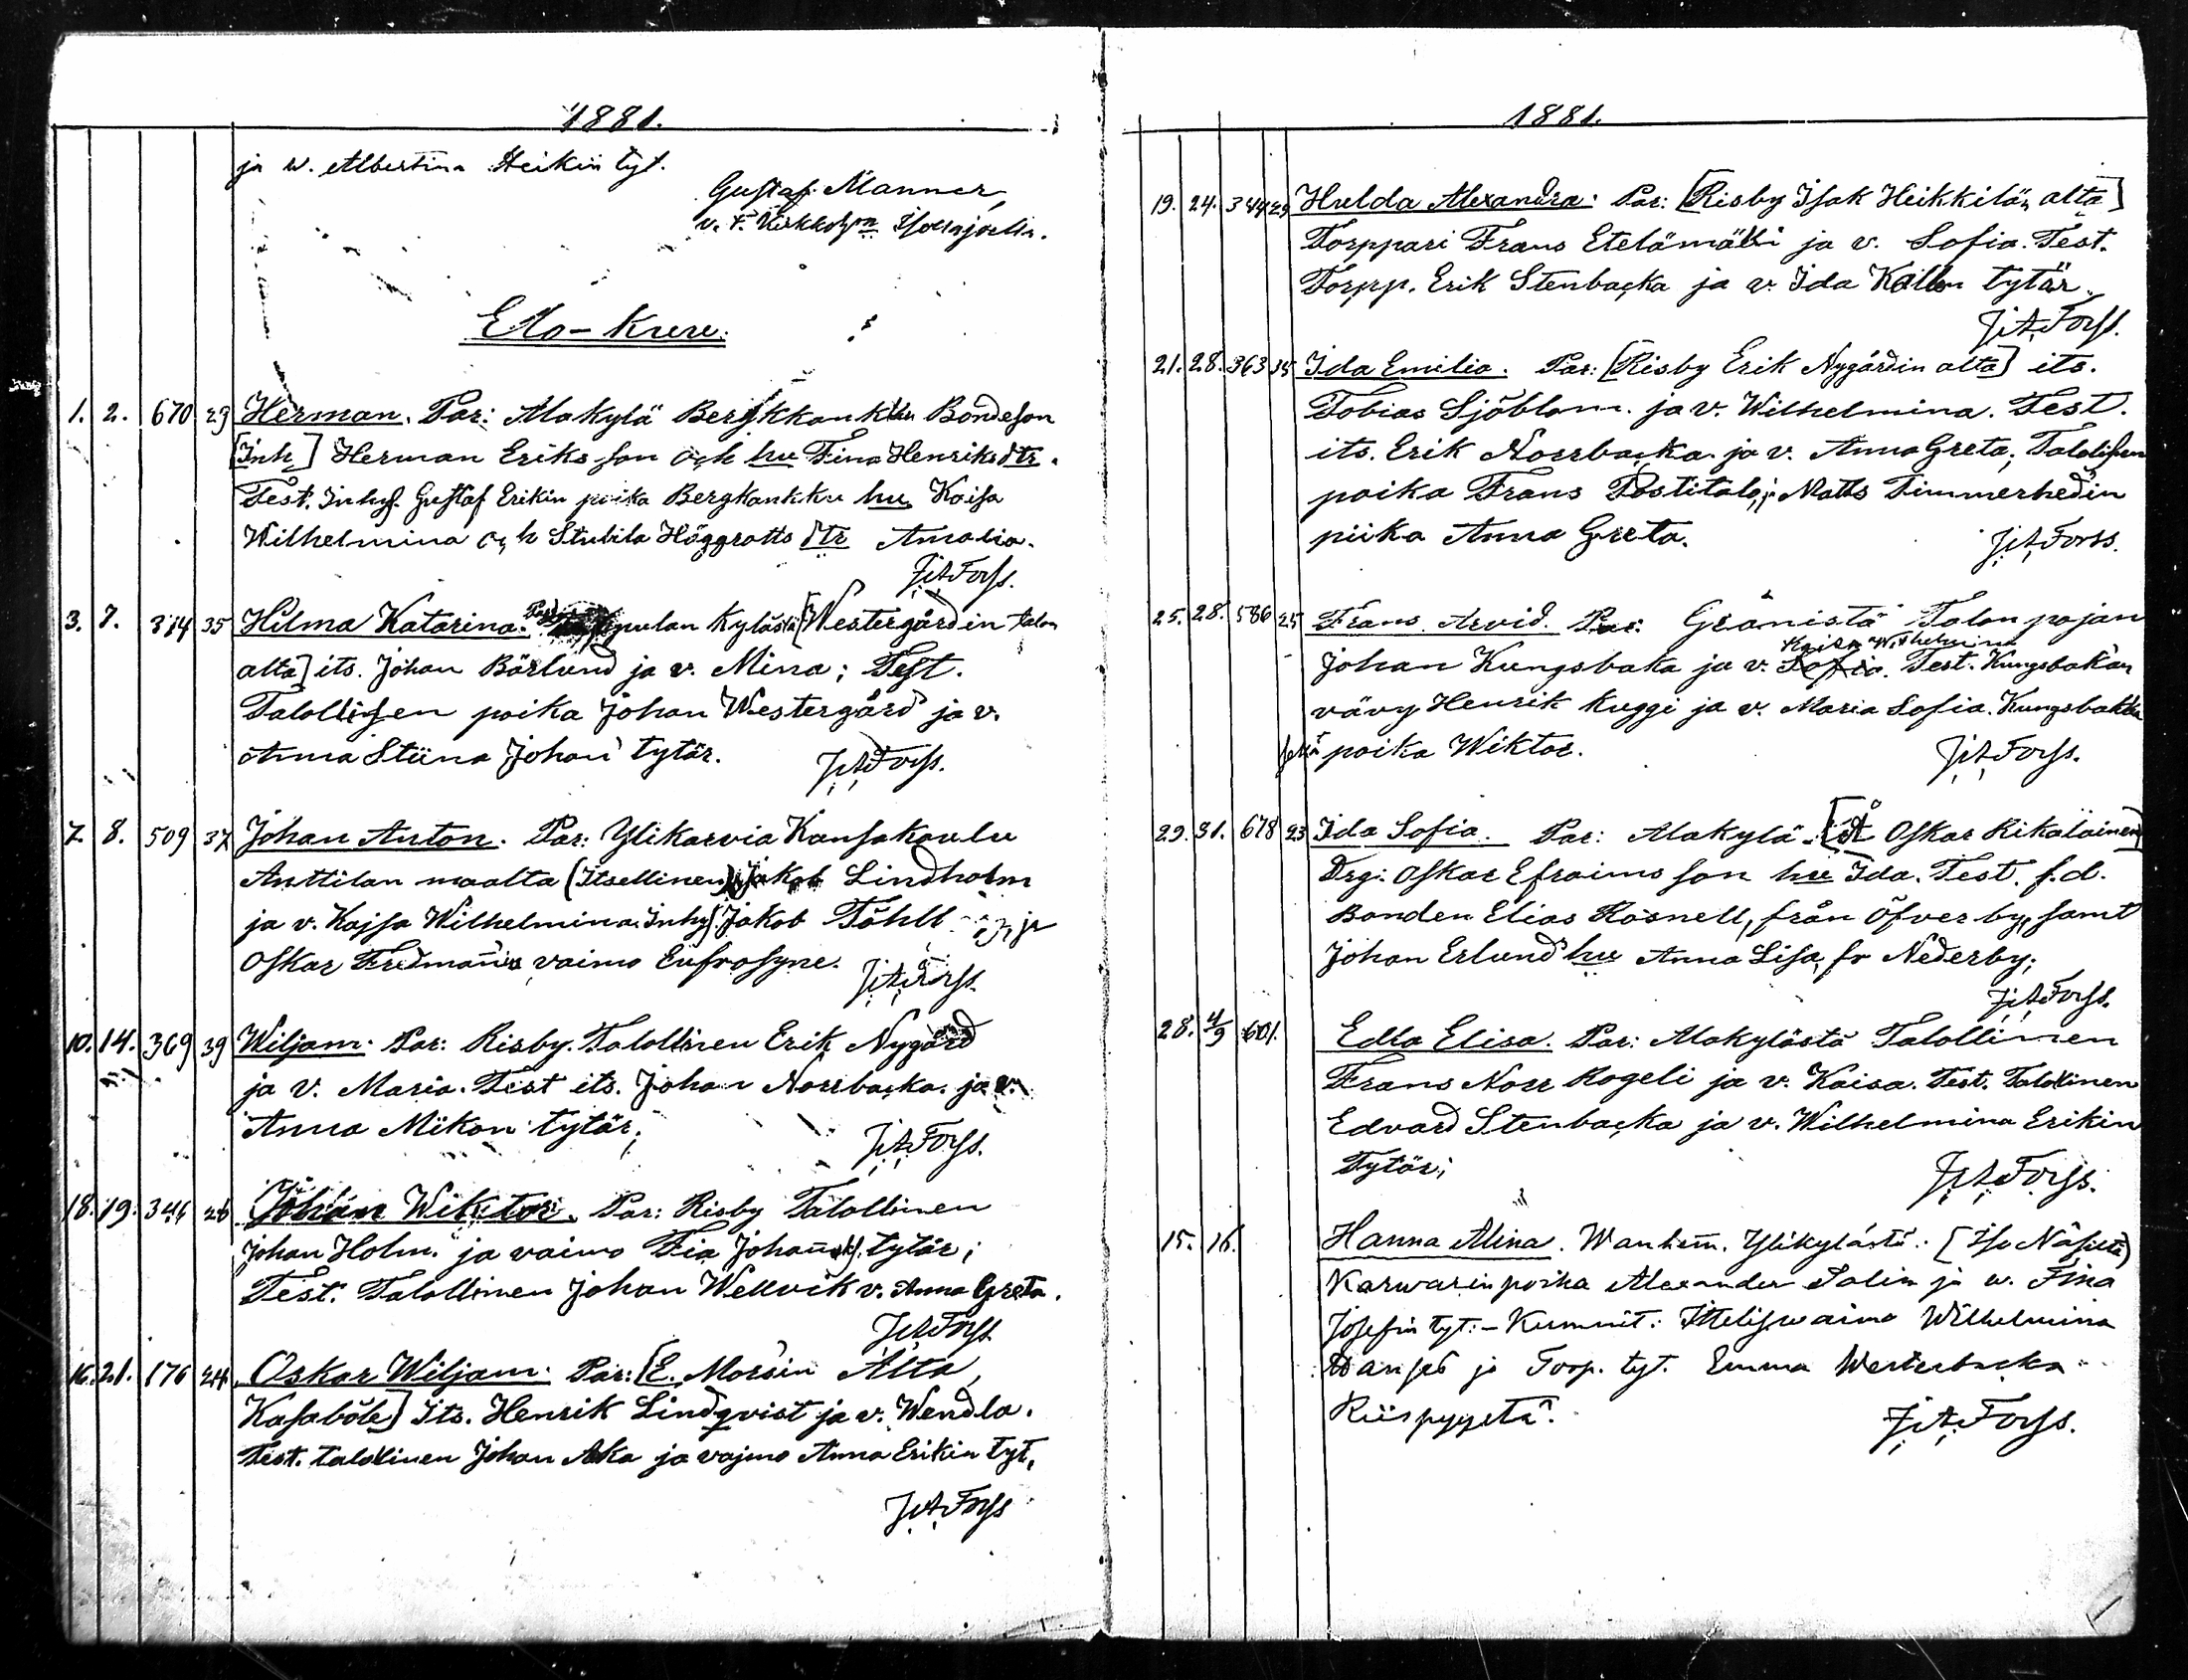 1881.
ja w. Albertina Heikin tyt.
Gustaf Manner,
v. t. Kirkkoh:n
Elo-kuu.
1. 2. 670 29 Herman. Par: Alakylä Bergkkankku Bondeson
[Inh] Herman Eriksson och hu Fina Henriksdtr.
Test. Inhys. Gustaf Erikin poika Bergkankku hu Kaisa
Wilhelmina och Stubila Höggrotts dtr Amalia.
JAForss.
3. 7. 314 35 Hilma Katarina. Par. kylästä [Westergårdin talon
alta] its. Johan Bärlund ja v. Mina; Test.
Talollisen poika Johan Westergård ja v.
Anna Stiina Johan tytär.
JAForss.
7. 8. 509 37 Johan Anton. Par: Ylikarvia Kansakoulu
Anttilan maalta (Itsellinen) Jakob Lindholm
ja v. Kajsa Wilhelmina. Inhys. Jakob Töhll ja
Oskar Fredmanns vaimo Eufrosyne.
JAForss.
10. 14. 369 39 Wiljam. Par: Risby. Talollinen Erik Nygård
ja v. Maria. Test its. Johan Norrbacka ja v.
Anna Mikon tytär;
JAForss.
18. 19. 344 26 Johan Wiktor. Par: Risby Talollinen
Johan Holm. ja vaimo Fia Johan tytär;
Test. Talollinen Johan Wellvik v. Anna Greta.
JAForss.
16. 21. 176 24 Oskar Wiljam. Par: [E. Morsin Alta,
Kasaböle] Its. Henrik Lindqvist ja v. Wendla.
Test. talollinen Johan Aka ja vajmo Anna Erikin tyt,
JAForss
1881.
19. 24. 344 29 Hulda Alexandra. Par: [Risby Isak Heikkilän alta]
Torppari Frans Etelämäki ja v. Sofia. Test.
Torpp. Erik Stenbacka ja v. Ida Kallen tytär.
JAForss.
21. 28. 363 35 Ida Emilia. Par: [Risby Erik Nygårdin alta] its.
Tobias Sjöblom. ja v. Wilhelmina. Test.
its. Erik Norrbacka ja v. Anna Greta; Talolisen
poika Frans Postitalo, ja Matts Timmerhedin
piika Anna Greta.
JAForss.
25. 28. 586 25 Frans Arvid. Par: Granistä Talonpojan
Kaisa Wilhelmina
Johan Kungsbaka ja v. Sofia. Test. Kungsbakan
vävy Henrik Kuggi ja v. Maria Sofia. Kungsbakka
poika Wiktor.
JAForss.
29. 31. 678 23 Ida Sofia. Par: Alakylä [Å Oskar Rikalainen]
Drg: Oskar Efraimsson hu Ida. Test. f.d.
Bonden Elias Rosnell, från Öfverby, samt
Johan Erlund hu Anna Lisa, fr Nederby;
JAForss.
28. 4/9 601. Edla Elisa. Par: Alakylästä Talollinen
Frans Norr Rogeli ja v. Kaisa. Test. Talollinen
Edvard Stenbacka ja v. Wilhelmina Erikin
Tytär;
JAForss.
15. 16. Hanna Alina. Wanhem. Ylikylästä. [Iso Näsiltä]
Karwarinpoika Alexander Salin ja w. Fina
Josefin tyt: - Kummit: Ittelisvaimo Wilhelmina
ja Torp. tyt. Emma Westerbacka
Riispyystä.
JAForss.